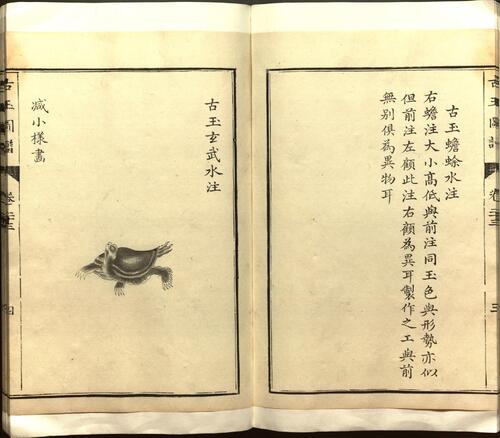 古玉圖譜
卷七十三
三
古玉蟾蜍水注
右蟾注大小高低與前注同玉色與形勢亦似
但前注左顧此注右顧為異耳製作之工與前
無別俱為異物耳
古玉玄武水注
減小樣畫
古玉圖譜
四